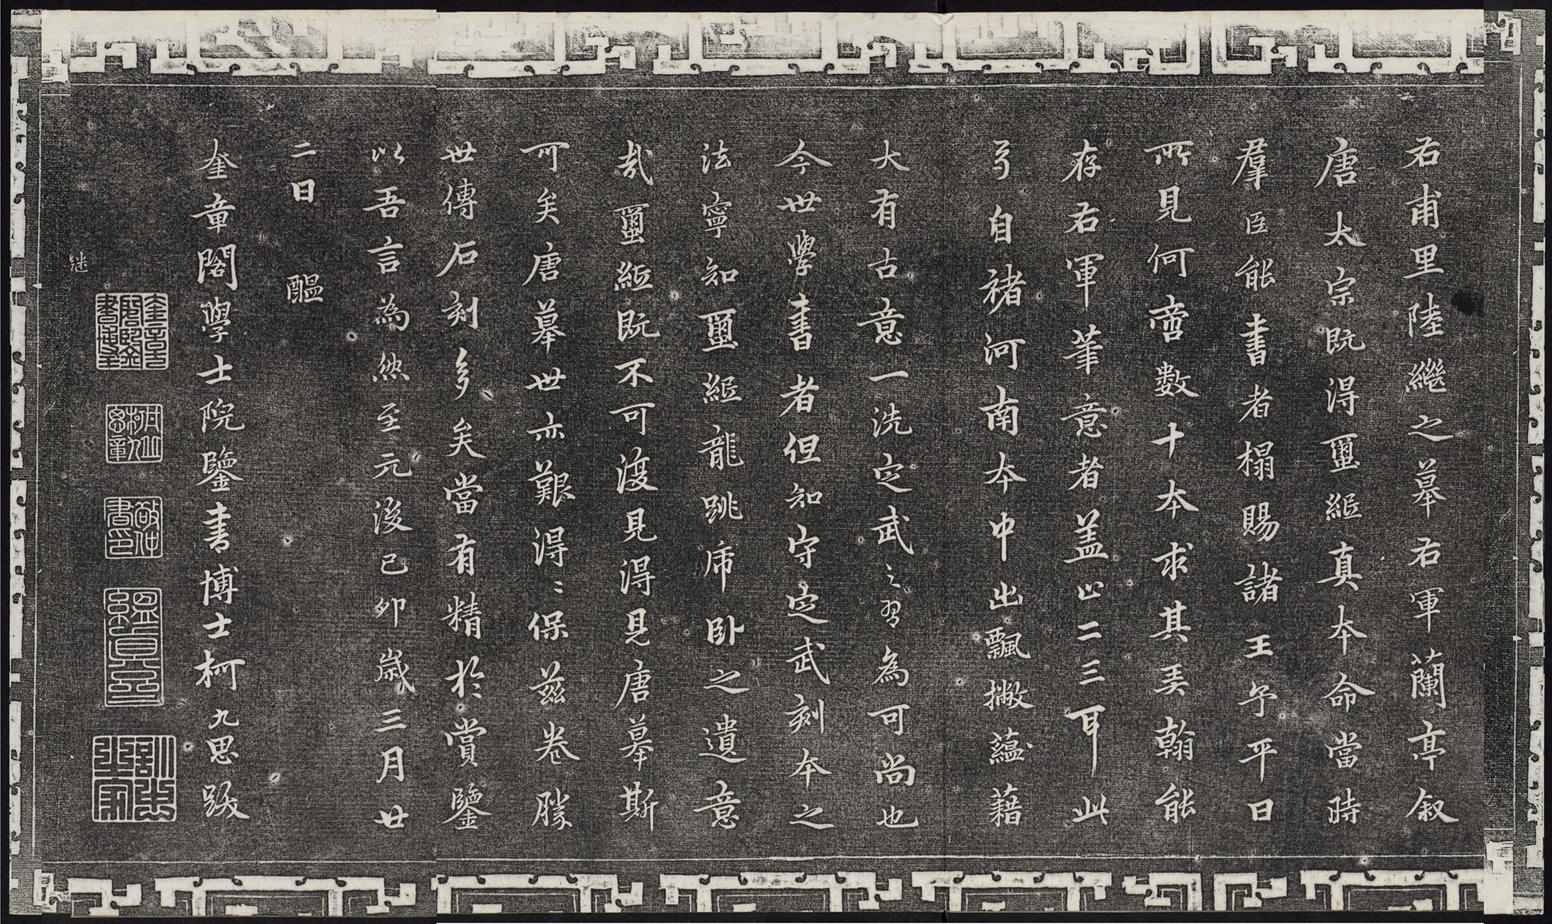 右甫里陸繼之摹右軍蘭亭叙
唐太宗既得蠒紙真本命當時
羣臣能書者榻賜諸王予平日
所見何啻數十本求其美翰能
存右軍筆意者盖止二三耳此
弓自褚河南本中出飄撇蘊藉
大有古意一洗定武之習為可尚也
今世學書者但知守定武刻本之
法寧知蠒紙龍跳虎卧之遺意
哉蠒紙既不可復見得見唐摹斯
可矣唐摹世亦艱得〻保兹卷勝
世傳石刻多矣當有精於賞鑒
以吾言為然至元後己卯歲三月廿
二日 醞
奎章閣學士院鑒書博士柯九思跋
奎章閣鑒書博士
敬仲書印
緼真齋
訓忠之家